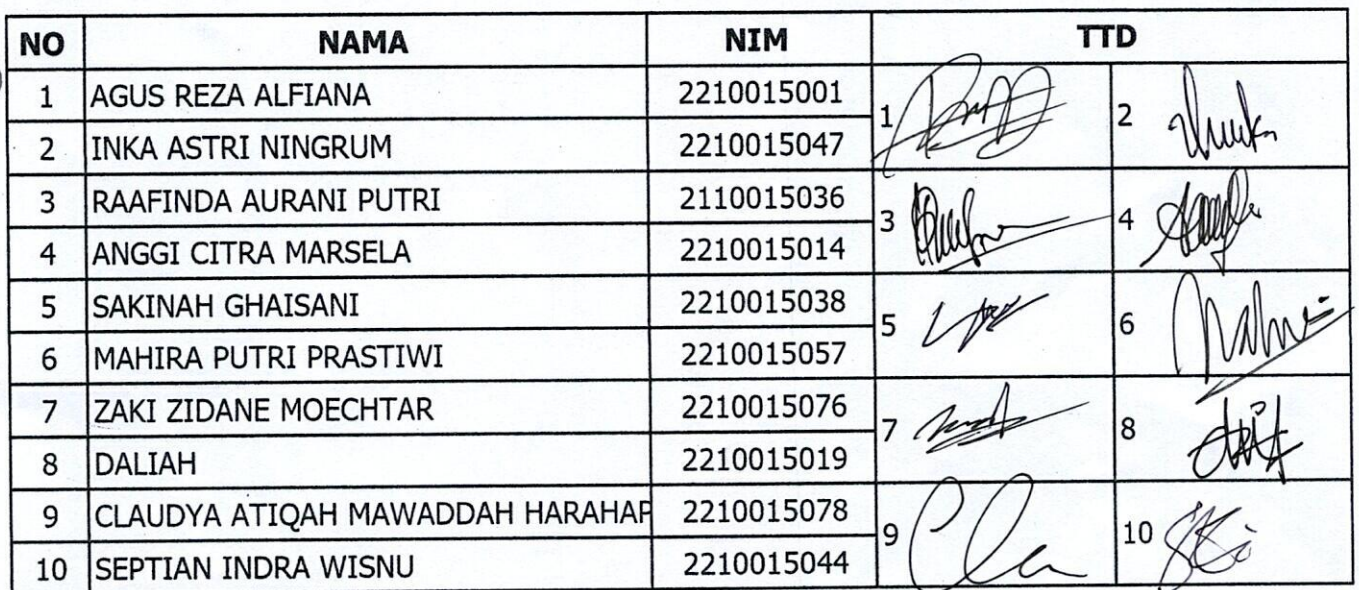 NO NAMA NIM TTD
1 AGUS REZA ALFIANA 2210015001 1 2
2 INKA ASTRI NINGRUM 2210015047
3 RAAFINDA AURANI PUTRI 2110015036 3 4
4 ANGGI CITRA MARSELA 2210015014
5 SAKINAH GHAISANI 2210015038 5 6
6 MAHIRA PUTRI PRASTIWI 2210015057
7 ZAKI ZIDANE MOECHTAR 2210015076 7 8
8 DALIAH 2210015019
9 CLAUDYA ATIQAH MAWADDAH HARAHAP 2210015078 9 10
10 SEPTIAN INDRA WISNU 2210015044